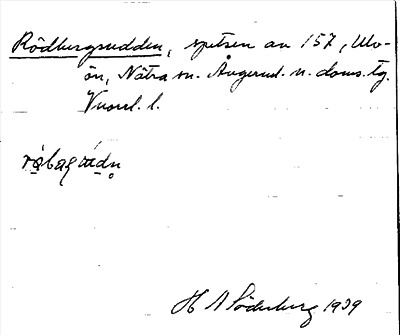 Rödbergsudden, spetsen av 157, Ulv-
ön, Nätra sn. Ångerml. n. doms. tg.
Vnorrl. l.
H A Söderberg 1939